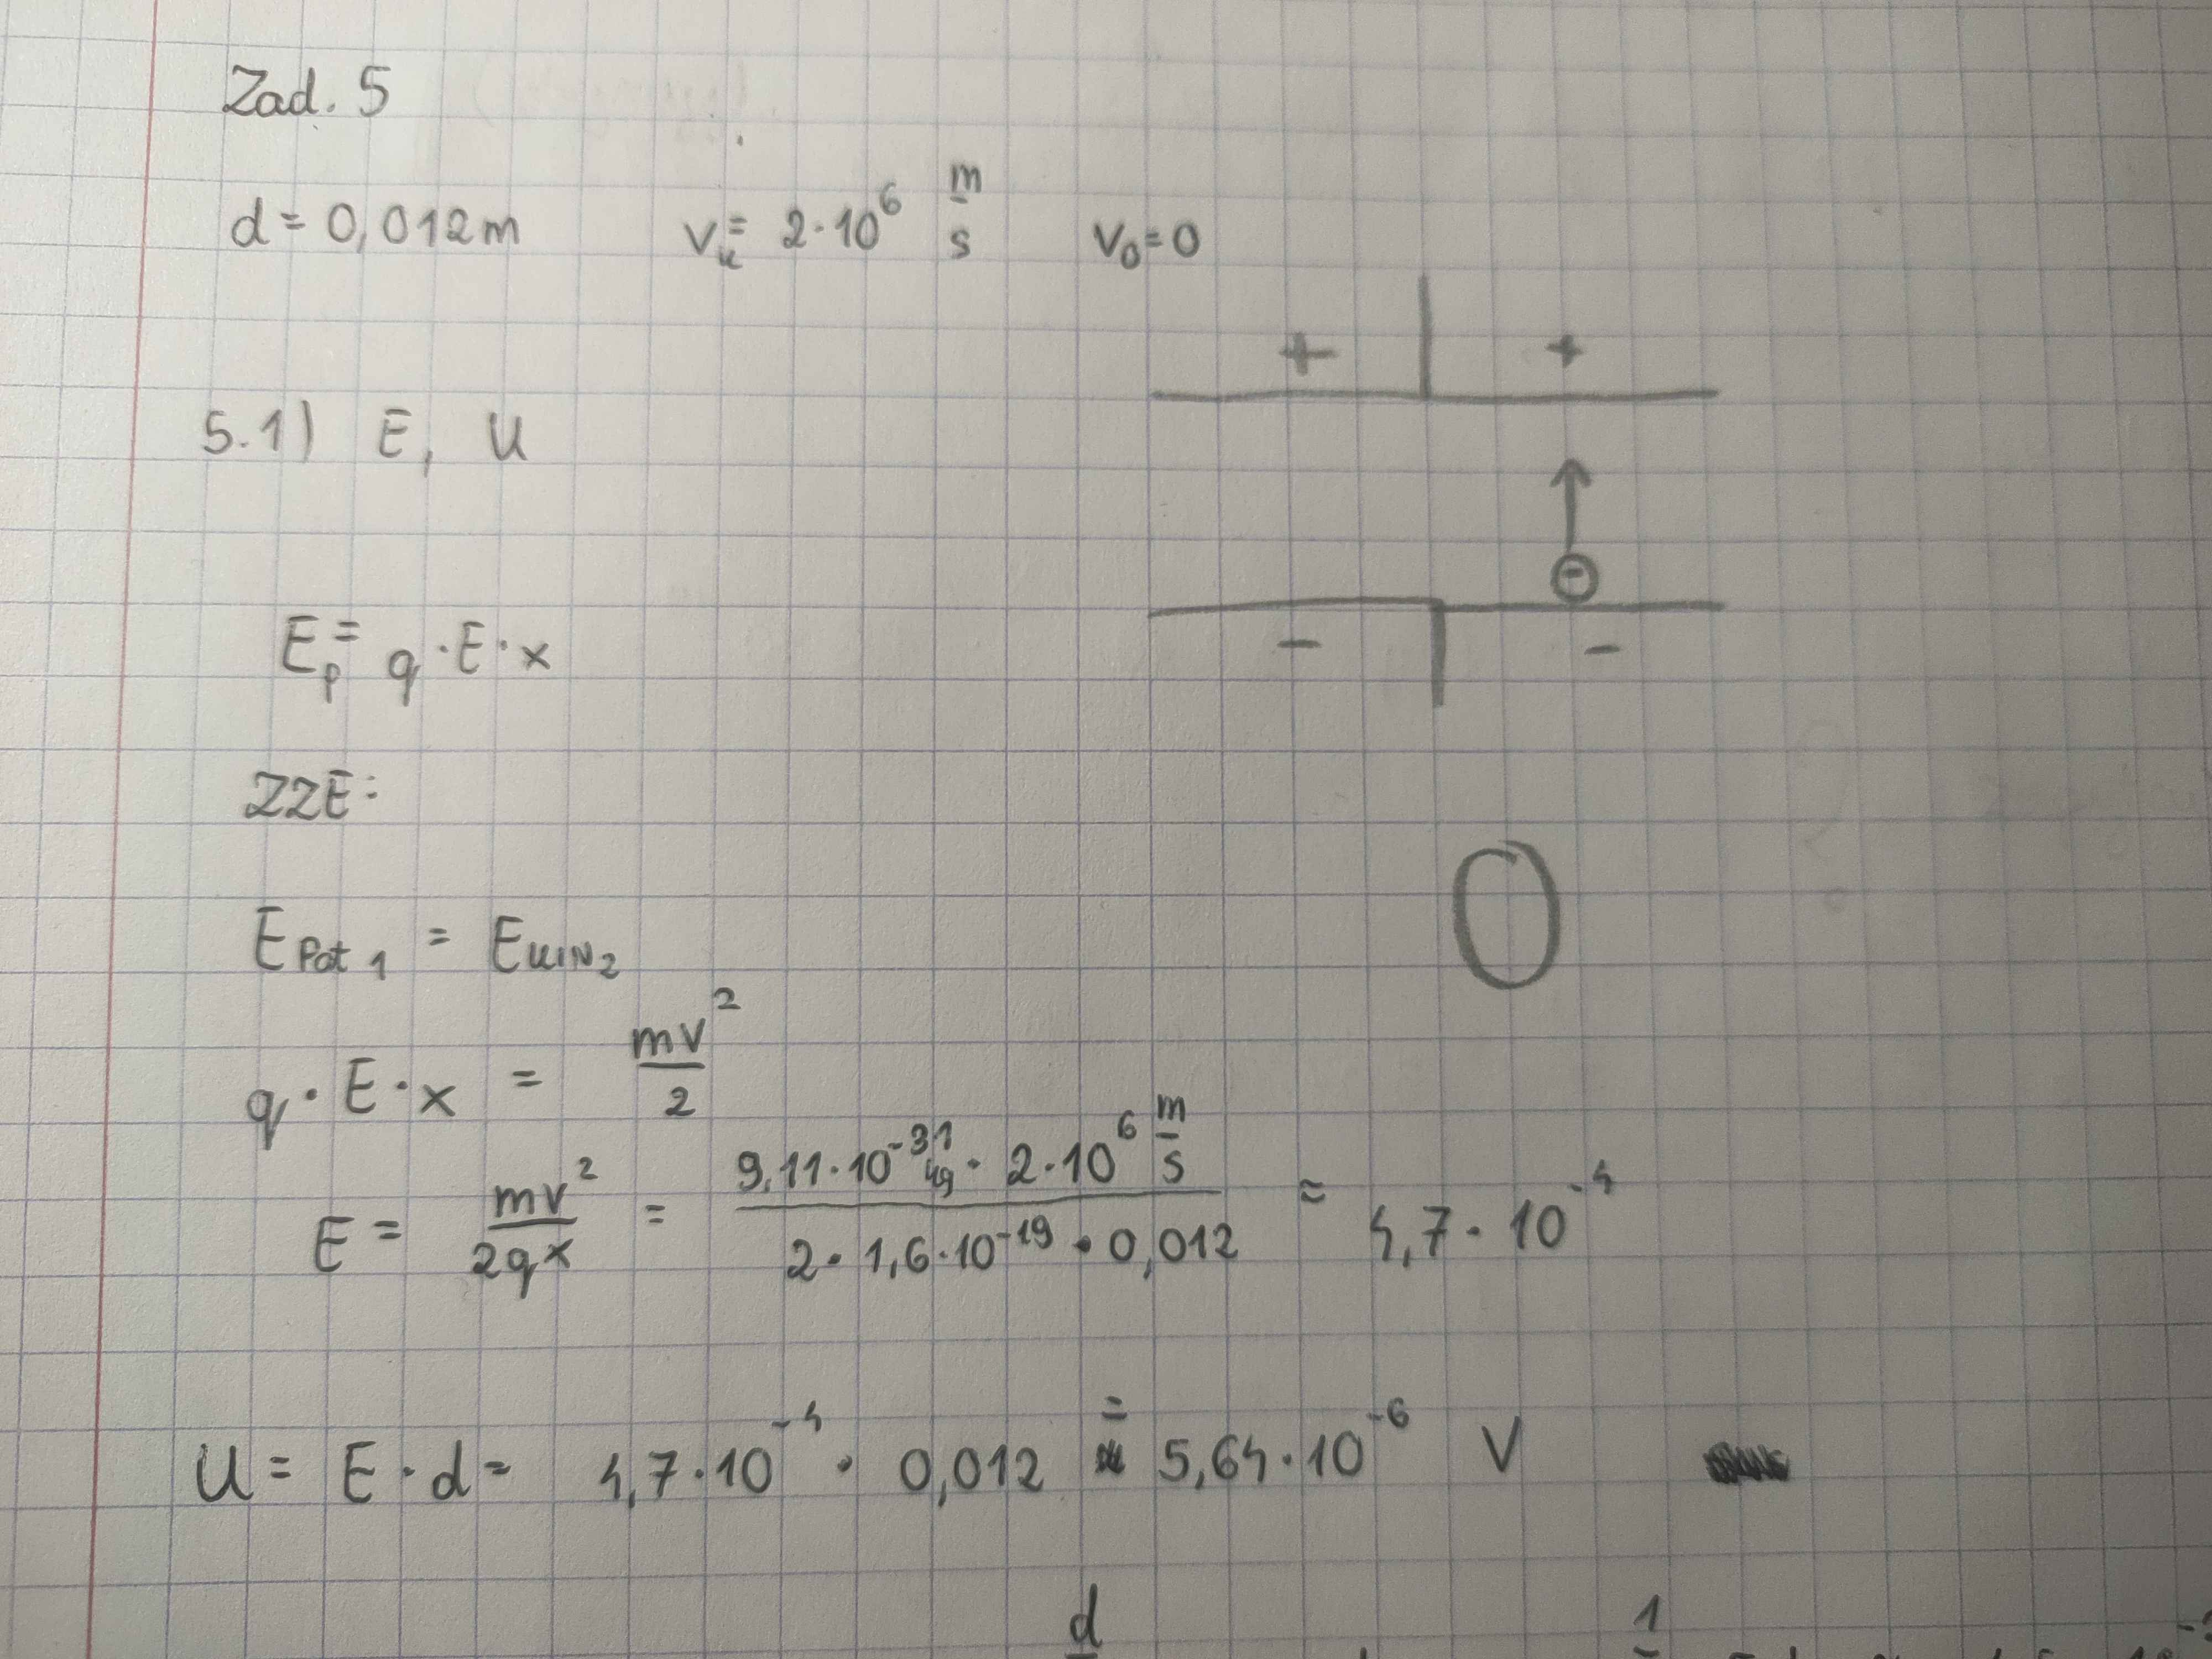 Zad. 5
d = 0,012m v_k = 2·10^6 m/s v_0 = 0
+ +
5.1) E, U
⊖
E_p = q · E · x
- -
ZZE:
E_Pot 1 = E_KIN 2
0
q · E · x = mv^2/2
E = mv^2/2qx = 9,11·10^-31 kg · 2·10^6 m/s / 2·1,6·10^-19 · 0,012 ≈ 4,7·10^-4
U = E · d = 4,7·10^-4 · 0,012 = 5,64·10^-6 V
d 1